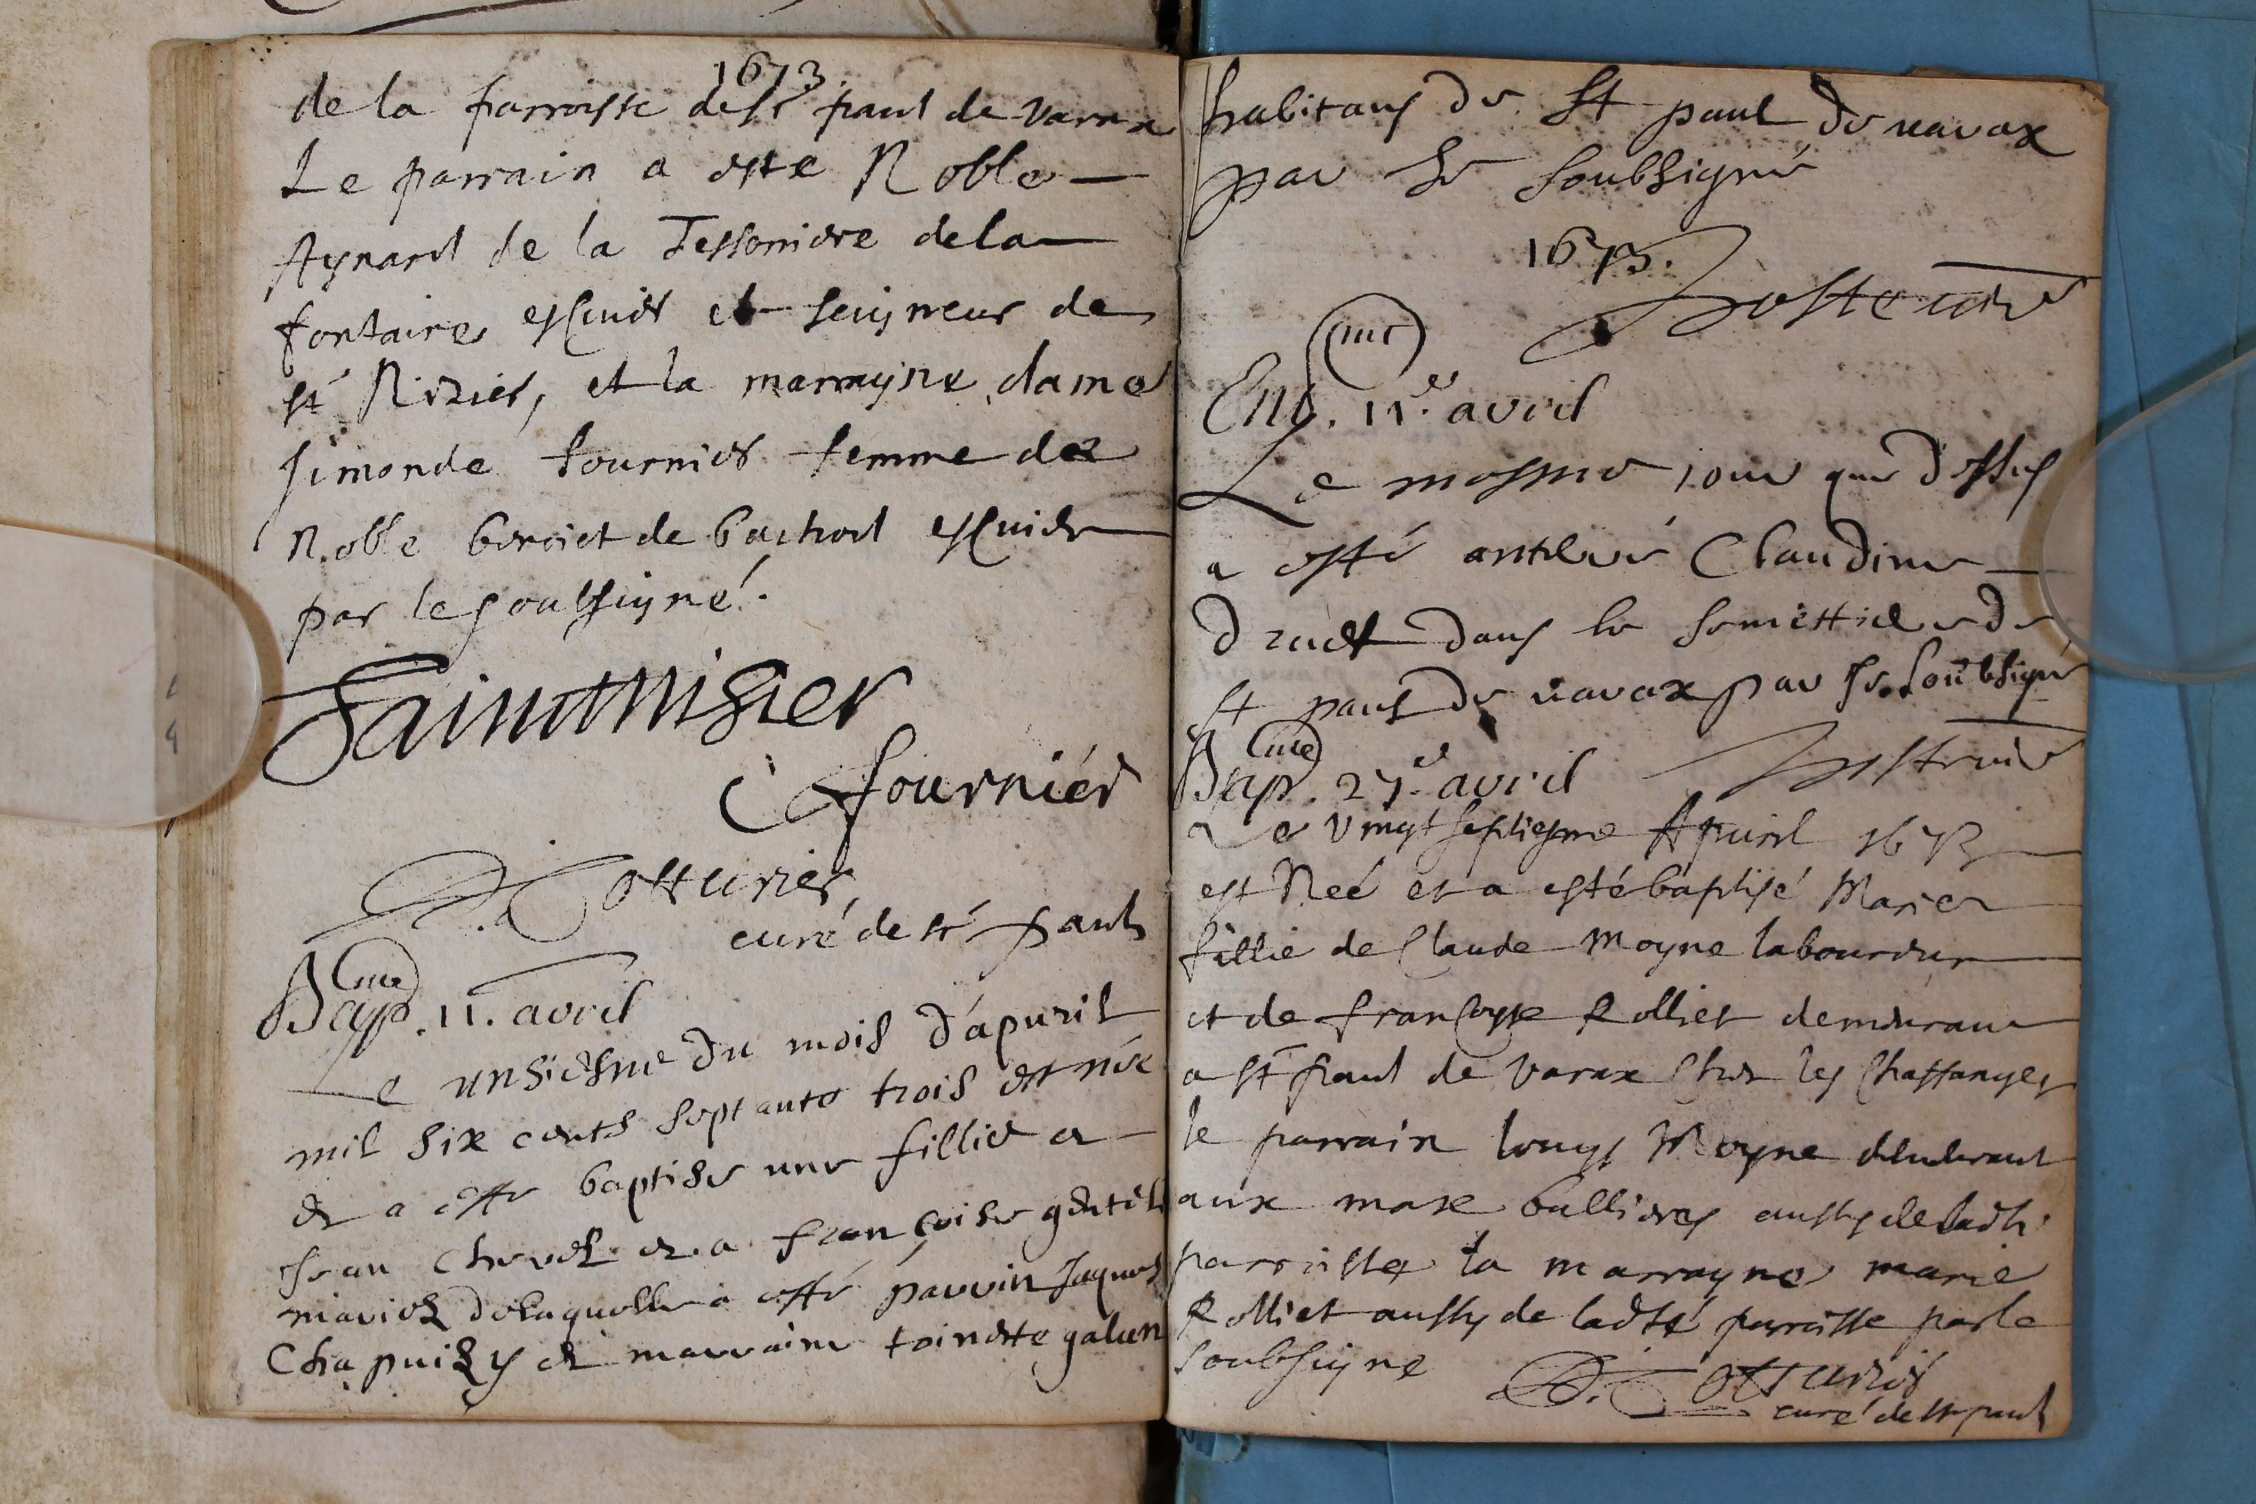 1673
de la parroisse de st paul de varax
Le parrain a este Noble
Aynard de la Tessonniere de la
fontaine escuier et seigneur de
st Nizier, et la marrayne dame
simonde fournier femme de
Noble benoict de bachod escuier
par le soubsigné.
Sainctnisier
C fournier
Cotturier
curé de st paul
Bap. 11. avril
Le unsiesme du mois d'apuril
mil six cents septante trois est née
et a esté baptisée une fillie a
Jean et a françoise
de laquelle a esté parrin Jaques
Chapuizy et marraine toinette
habitans de St paul de varax
par le soubsigné
1673.
Ent. 11.e avril
Le mesme jour que dessus
a esté anterré Claudine
dans le semettiere de
st paul de varax par le soubsigné
Bap. 27.e avril
Le vingt septiesme Apuril 1673
est Neé et a esté baptisé Marie
fillie de Claude Moyne laboureur
et de françoyse Rolliet demeurans
a st paul de varax ches les Chaffanges
le parrain louys Moyne demeurant
aux mase bullieres aussy de ladte
parroisse la marrayne marie
Rolliet aussy de ladte parroisse par le
soubsigne
Cotturier
curé de st paul